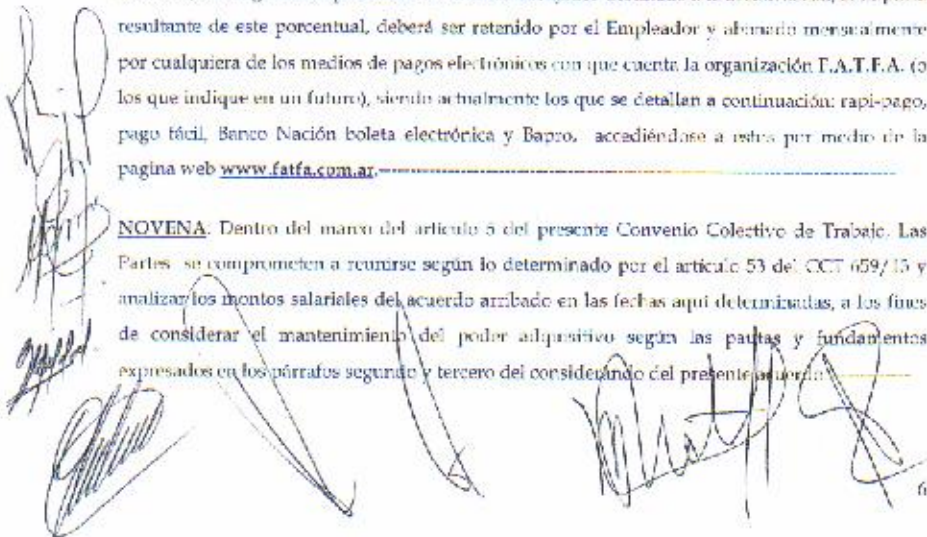 resultante de este porcentual, deberá ser retenido por el Empleador y abonado mensualmente
por cualquiera de los medios de pagos electrónicos con que cuenta la organización F.A.T.F.A. (o
los que indique en un futuro), siendo actualmente los que se detallan a continuación: rapi-pago,
pago fácil, Banco Nación boleta electrónica y Bapro, accediéndose a estos por medio de la
pagina web www.fatfa.com.ar.
NOVENA: Dentro del marco del artículo 5 del presente Convenio Colectivo de Trabajo. Las
Partes se comprometen a reunirse según lo determinado por el artículo 53 del CCT 659/13 y
analizar los montos salariales del acuerdo arribado en las fechas aquí determinadas, a los fines
de considerar el mantenimiento del poder adquisitivo según las pautas y fundamentos
expresados en los párrafos segundo y tercero del considerando del presente acuerdo
6